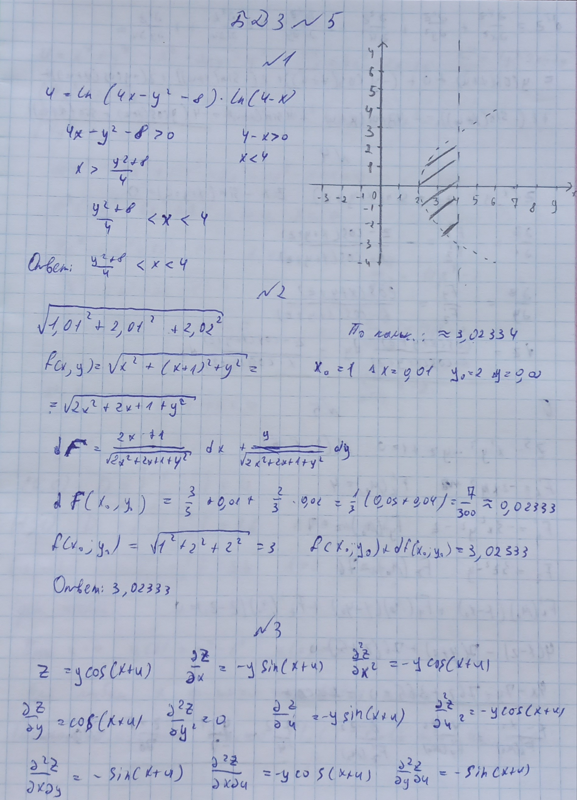 БДЗ №5
№1
u = ln(4x-y²-8)·ln(4-x)
4x-y²-8>0 4-x>0
x > (y²+8)/4 x<4
(y²+8)/4 < x < 4
Ответ: (y²+8)/4 < x < 4
4
3
2
1
-3 -2 -1 0 1 2 3 4 5 6 7 8 9
-1
-2
-3
-4
№2
√(1,01² + 2,01² + 2,02²) ≈ 3,02334
f(x,y) = √(x² + (x+1)² + y²) = x₀ = 1 Δx = 0,01 y₀ = 2
= √(2x² + 2x + 1 + y²)
dF = (2x+1)/√(2x²+2x+1+y²) dx + y/√(2x²+2x+1+y²) dy
dF(x₀,y₀) = 3/3 · 0,01 + 2/3 · 0,02 = 1/3 (0,03+0,04) = 7/300 ≈ 0,02333
f(x₀;y₀) = √(1²+2²+2²) = 3 f(x₀;y₀)+df(x₀,y₀) = 3,02333
Ответ: 3,02333
№3
z = y cos(x+u) ∂z/∂x = -y sin(x+u) ∂²z/∂x² = -y cos(x+u)
∂z/∂y = cos(x+u) ∂²z/∂y² = 0 ∂z/∂u = -y sin(x+u) ∂²z/∂u² = -y cos(x+u)
∂²z/∂x∂y = -sin(x+u) ∂²z/∂x∂u = -y cos(x+u) ∂²z/∂y∂u = -sin(x+u)